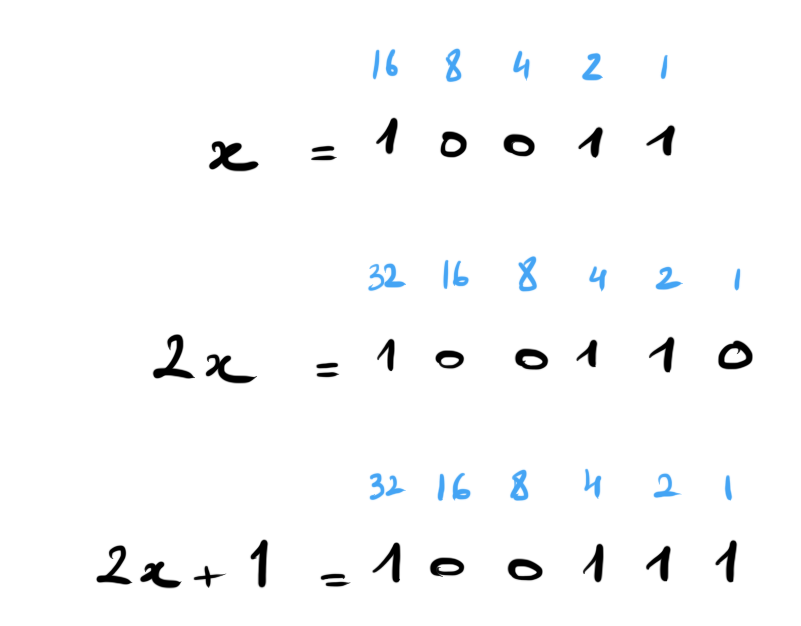 16 8 4 2 1
x = 1 0 0 1 1
32 16 8 4 2 1
2x = 1 0 0 1 1 0
32 16 8 4 2 1
2x + 1 = 1 0 0 1 1 1